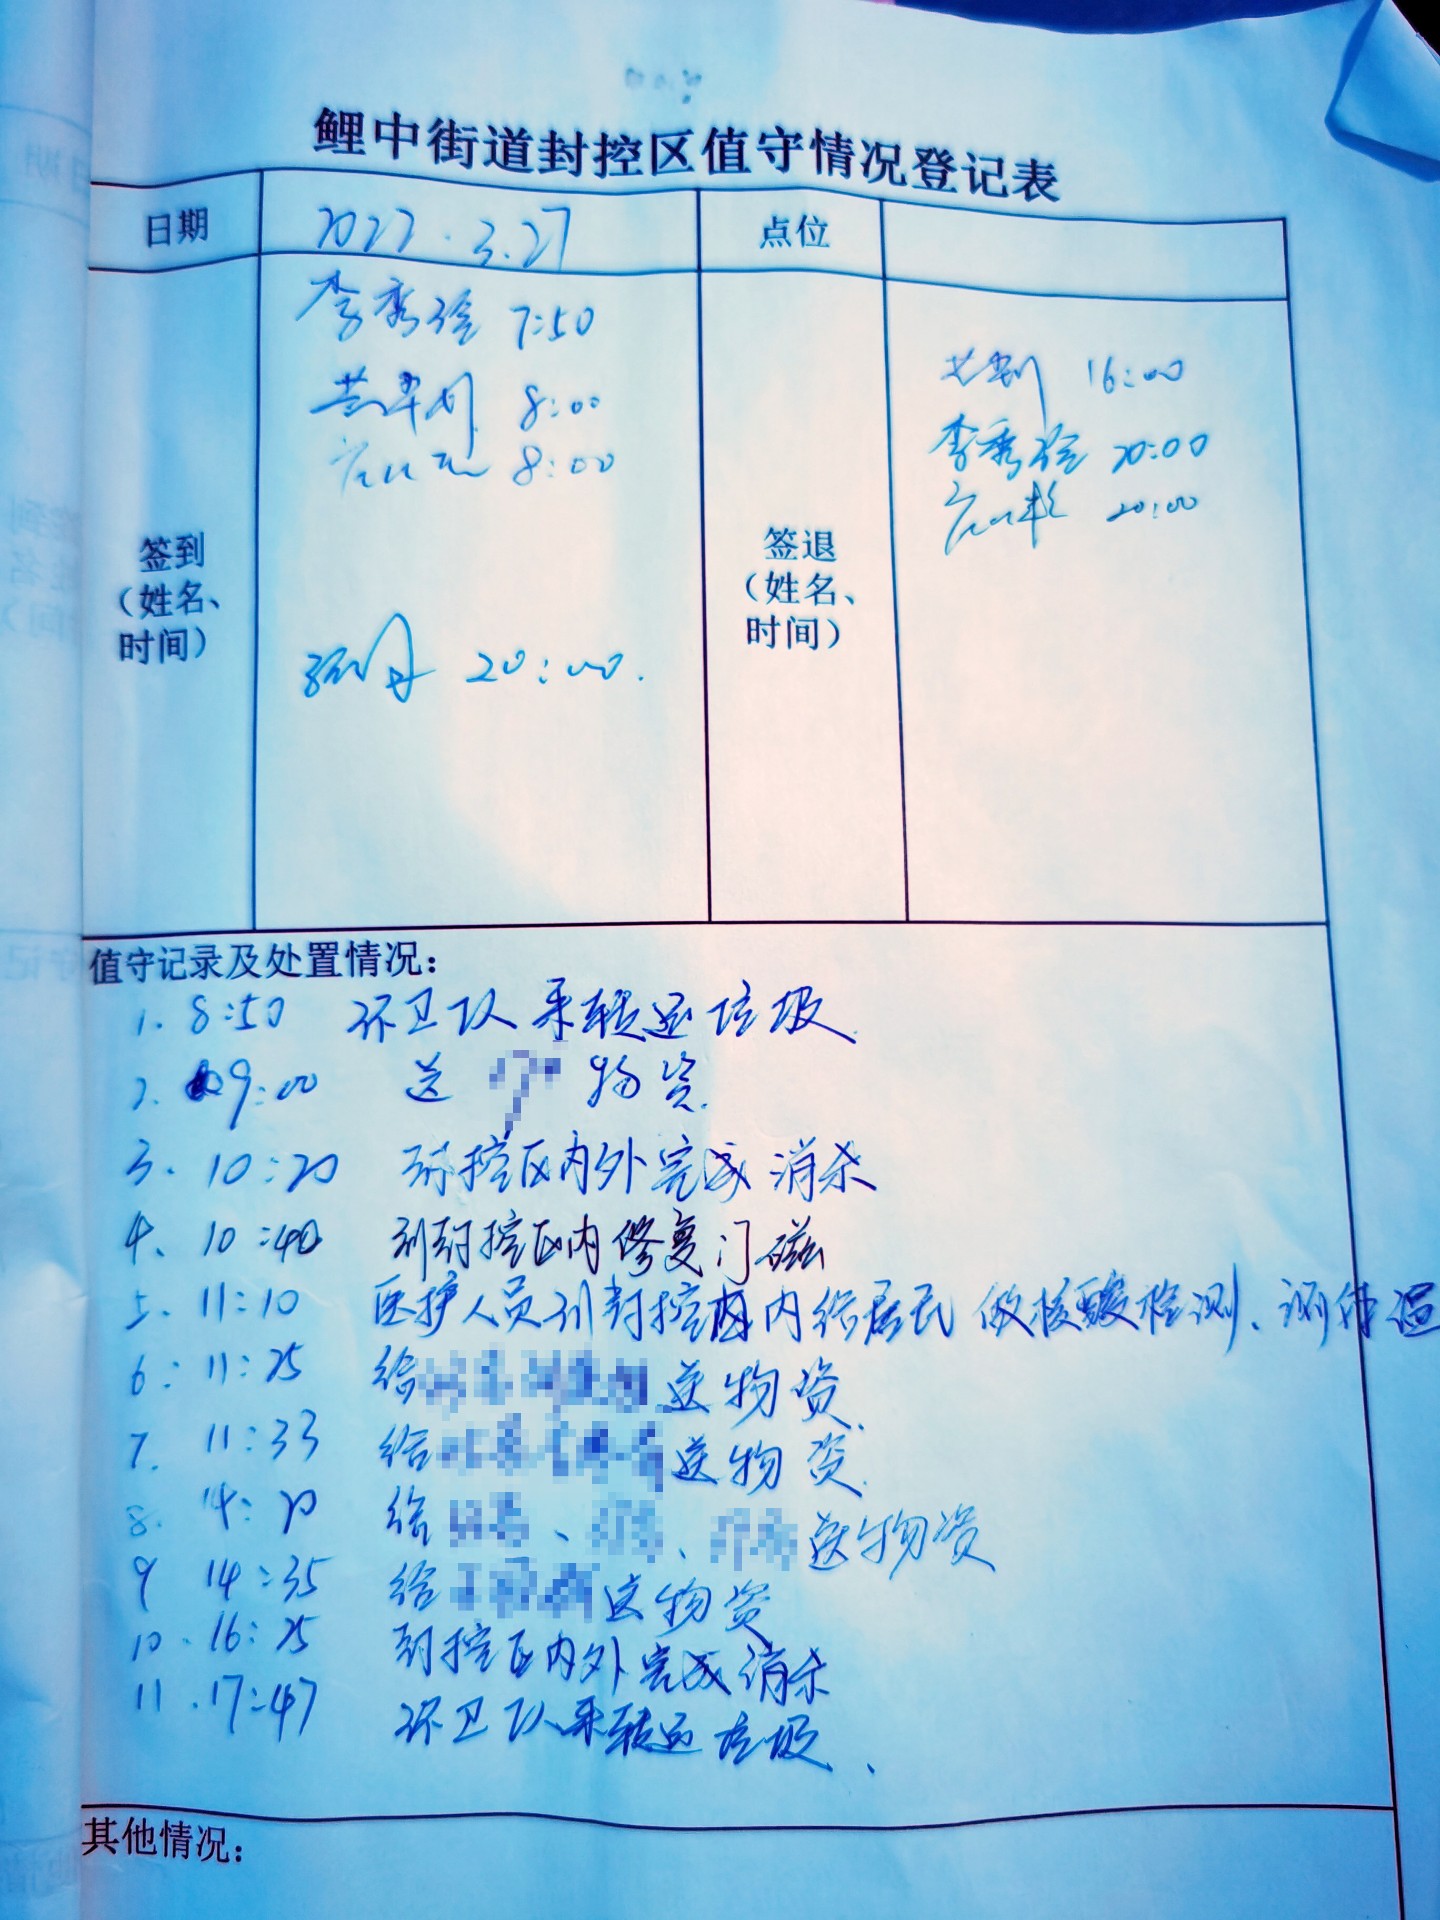 鲤中街道封控区值守情况登记表
日期 2022.3.27 点位
李秀 7:50
8:00
8:00
16:00
李秀 20:00
20:00
签到
(姓名、
时间)
签退
(姓名、
时间)
20:00.
值守记录及处置情况:
1. 8:50 环卫队来转运垃圾.
2. 09:00 送 物资.
3. 10:20 封控区内外完成消杀
4. 10:40 到封控区内修复门磁
5. 11:10 医护人员到封控区内给居民做核酸检测、测体温
6. 11:25 给 送物资.
7. 11:33 给 送物资.
8. 14:20 给 、 、 送物资
9 14:35 给 送物资
10. 16:25 封控区内外完成消杀
11. 17:47 环卫队来转运垃圾、
其他情况: